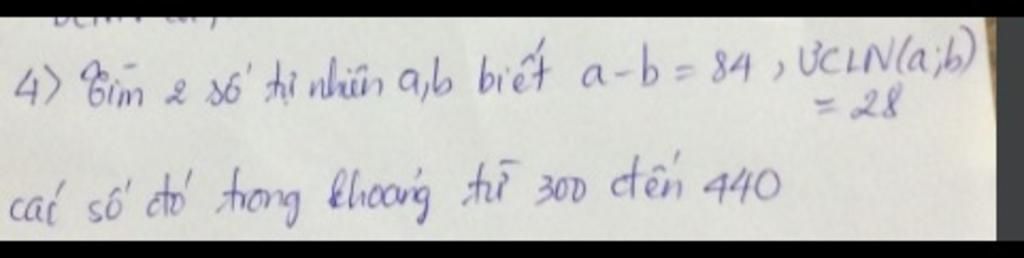 4) Tìm 2 số tự nhiên a,b biết a-b = 84, ƯCLN(a;b)
= 28
các số đó trong khoảng từ 300 đến 440